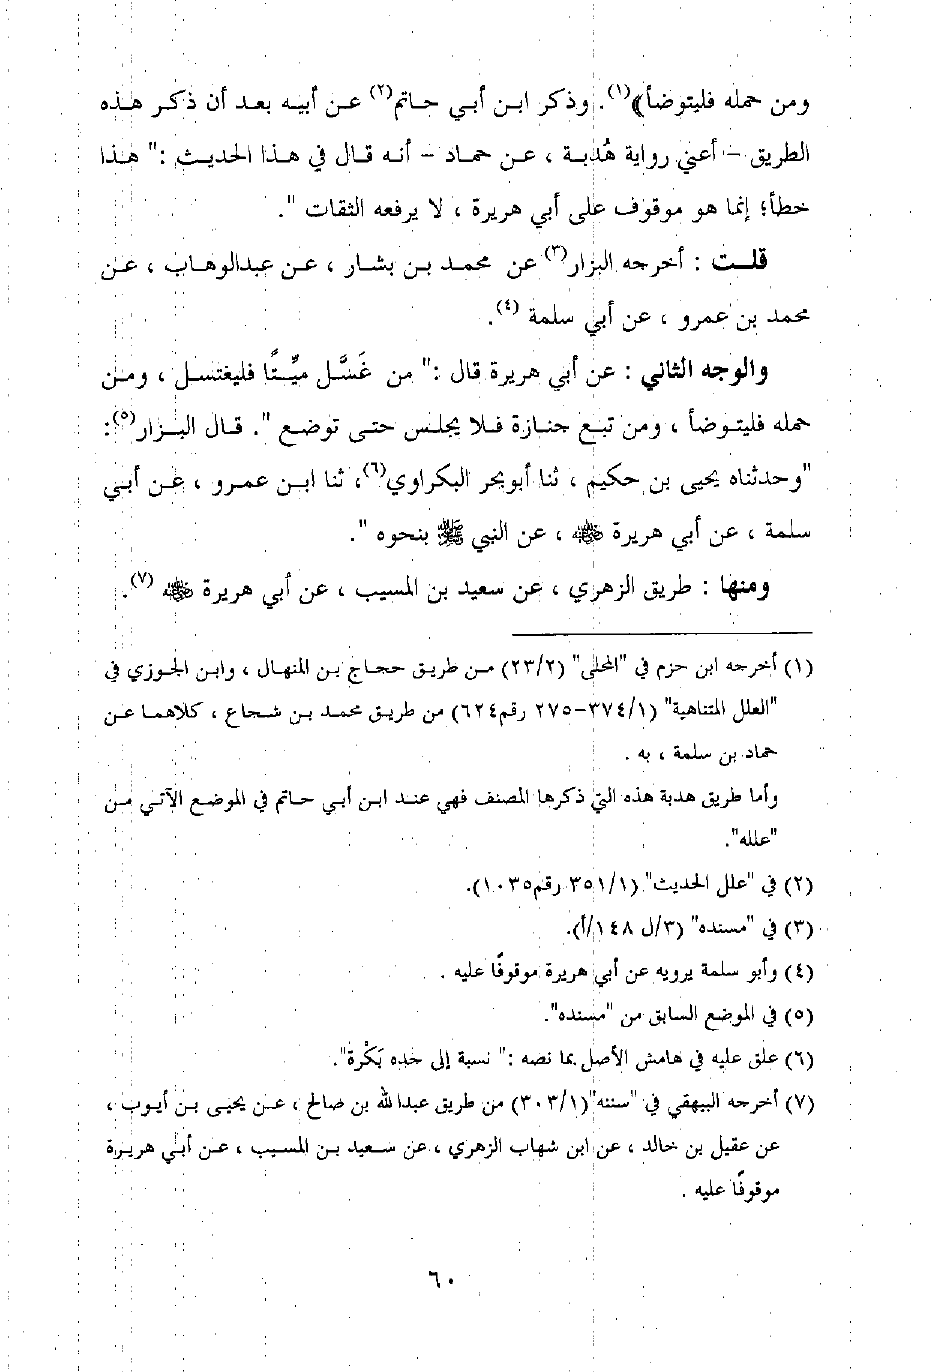 ومن حمله فليتوضأ﴾(١). وذكر ابن أبي حاتم(٢) عن أبيه بعد أن ذكر هذه
الطريق – أعني رواية هُدبة ، عن حماد – أنه قال في هذا الحديث :" هذا
خطأ؛ إنما هو موقوف على أبي هريرة ، لا يرفعه الثقات ".
قلت : أخرجه البزار(٣) عن محمد بن بشار ، عن عبدالوهاب ، عن
محمد بن عمرو ، عن أبي سلمة (٤).
والوجه الثاني : عن أبي هريرة قال :" من غَسَّل ميِّتًا فليغتسل ، ومن
حمله فليتوضأ ، ومن تبع جنازة فلا يجلس حتى توضع ". قال البزار(٥):
"وحدثناه يحيى بن حكيم ، ثنا أبوبحر البكراوي(٦)، ثنا ابن عمرو ، عن أبي
سلمة ، عن أبي هريرة ﷺ ، عن النبي ﷺ بنحوه ".
ومنها : طريق الزهري ، عن سعيد بن المسيب ، عن أبي هريرة (٧).
(١) أخرجه ابن حزم في "المحلى" (٢٣/٢) من طريق حجاج بن المنهال ، وابن الجوزي في
"العلل المتناهية" (٣٧٤/١–٢٧٥ رقم٦٢٤) من طريق محمد بن شجاع ، كلاهما عن
حماد بن سلمة ، به .
وأما طريق هدبة هذه التي ذكرها المصنف فهي عند ابن أبي حاتم في الموضع الآتي من
"علله".
(٢) في "علل الحديث" (٣٥١/١ رقم١٠٣٥).
(٣) في "مسنده" (٣/ل ١٤٨/أ).
(٤) وأبو سلمة يرويه عن أبي هريرة موقوفًا عليه .
(٥) في الموضع السابق من "مسنده".
(٦) علق عليه في هامش الأصل بما نصه :" نسبة إلى جده بَكْرة".
(٧) أخرجه البيهقي في "سننه"(٣٠٣/١) من طريق عبدالله بن صالح ، عن يحيى بن أيوب ،
عن عقيل بن خالد ، عن ابن شهاب الزهري ، عن سعيد بن المسيب ، عن أبي هريرة
موقوفًا عليه .
٦٠